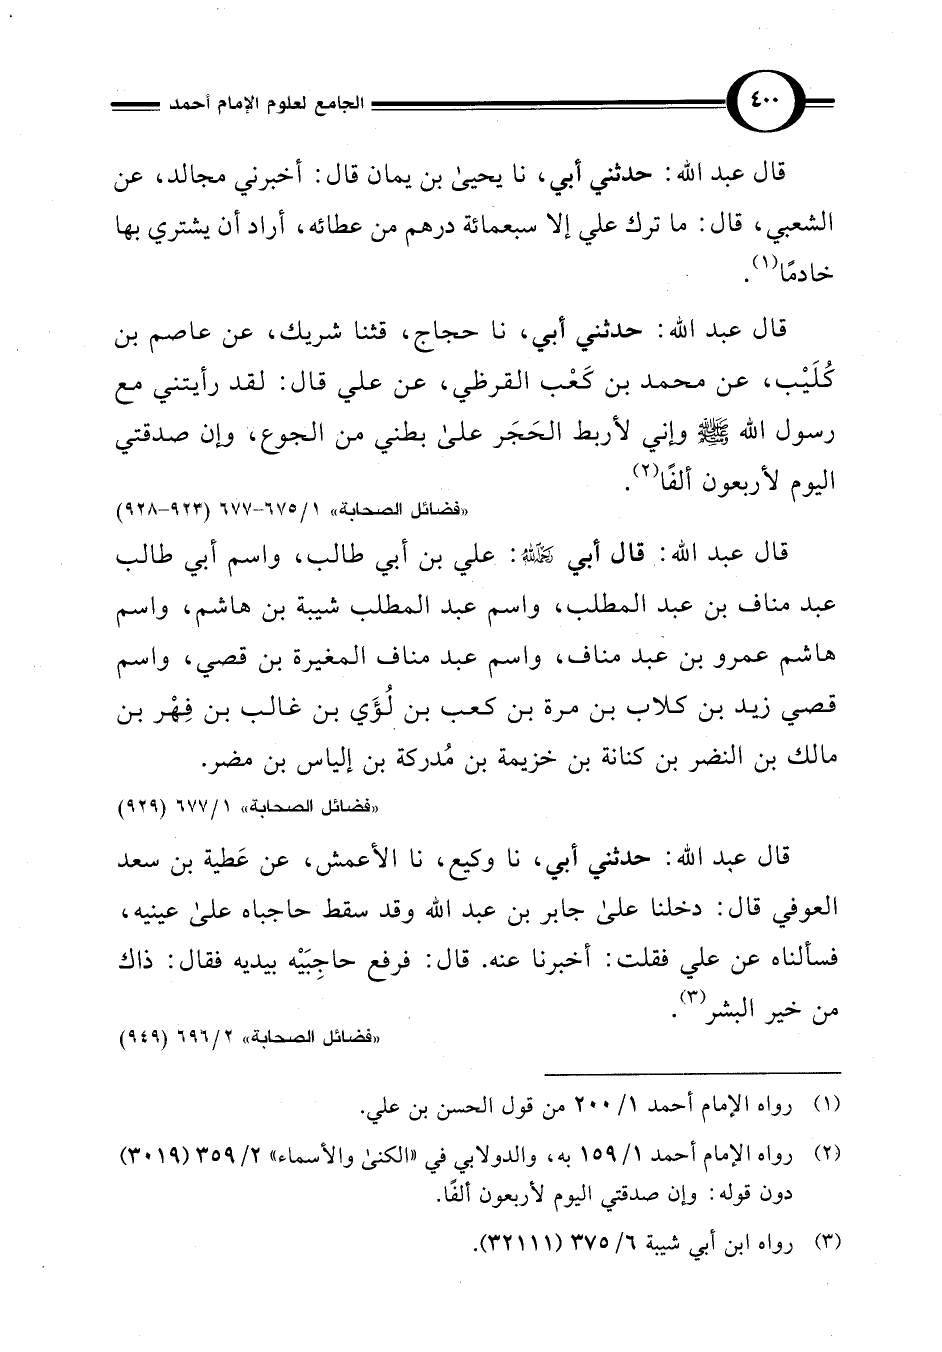 ٤٠٠
الجامع لعلوم الإمام أحمد
قال عبد الله: حدثني أبي، نا يحيىٰ بن يمان قال: أخبرني مجالد، عن
الشعبي، قال: ما ترك علي إلا سبعمائة درهم من عطائه، أراد أن يشتري بها
خادمًا(١).
قال عبد الله: حدثني أبي، نا حجاج، قثنا شريك، عن عاصم بن
كُلَيْب، عن محمد بن كَعْب القرظي، عن علي قال: لقد رأيتني مع
رسول الله ﷺ وإني لأربط الحَجَر علىٰ بطني من الجوع، وإن صدقتي
اليوم لأربعون ألفًا(٢).
«فضائل الصحابة» ١/ ٦٧٥-٦٧٧ (٩٢٣-٩٢٨)
قال عبد الله: قال أبي رحمه الله: علي بن أبي طالب، واسم أبي طالب
عبد مناف بن عبد المطلب، واسم عبد المطلب شيبة بن هاشم، واسم
هاشم عمرو بن عبد مناف، واسم عبد مناف المغيرة بن قصي، واسم
قصي زيد بن كلاب بن مرة بن كعب بن لُؤَي بن غالب بن فِهْر بن
مالك بن النضر بن كنانة بن خزيمة بن مُدركة بن إلياس بن مضر.
«فضائل الصحابة» ١/ ٦٧٧ (٩٢٩)
قال عبد الله: حدثني أبي، نا وكيع، نا الأعمش، عن عَطية بن سعد
العوفي قال: دخلنا علىٰ جابر بن عبد الله وقد سقط حاجباه علىٰ عينيه،
فسألناه عن علي فقلت: أخبرنا عنه. قال: فرفع حاجِبَيْه بيديه فقال: ذاك
من خير البشر(٣).
«فضائل الصحابة» ٢/ ٦٩٦ (٩٤٩)
(١) رواه الإمام أحمد ١/ ٢٠٠ من قول الحسن بن علي.
(٢) رواه الإمام أحمد ١/ ١٥٩ به، والدولابي في «الكنىٰ والأسماء» ٢/ ٣٥٩ (٣٠١٩)
دون قوله: وإن صدقتي اليوم لأربعون ألفًا.
(٣) رواه ابن أبي شيبة ٦/ ٣٧٥ (٣٢١١١).